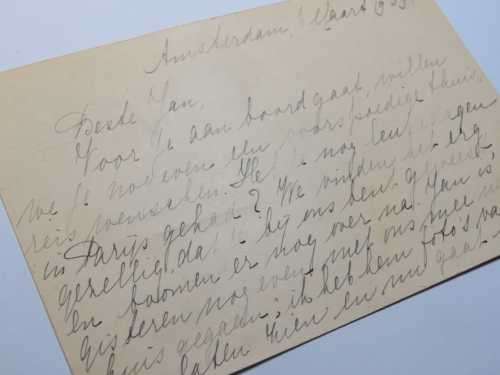 Amsterdam, 1 Maart 193
Beste Jan,
Voor je aan boord gaat, willen
we je nog even een voorspoedige thuis
reis wenschen. Heb je nog een
in Parijs gehad? We vinden het erg
gezellig, dat je bij ons bent geweest
en boomen er nog over na. Jan is
gisteren nog even met ons mee n
huis gegaan; ik heb hem foto's va
laten zien en nu gaat